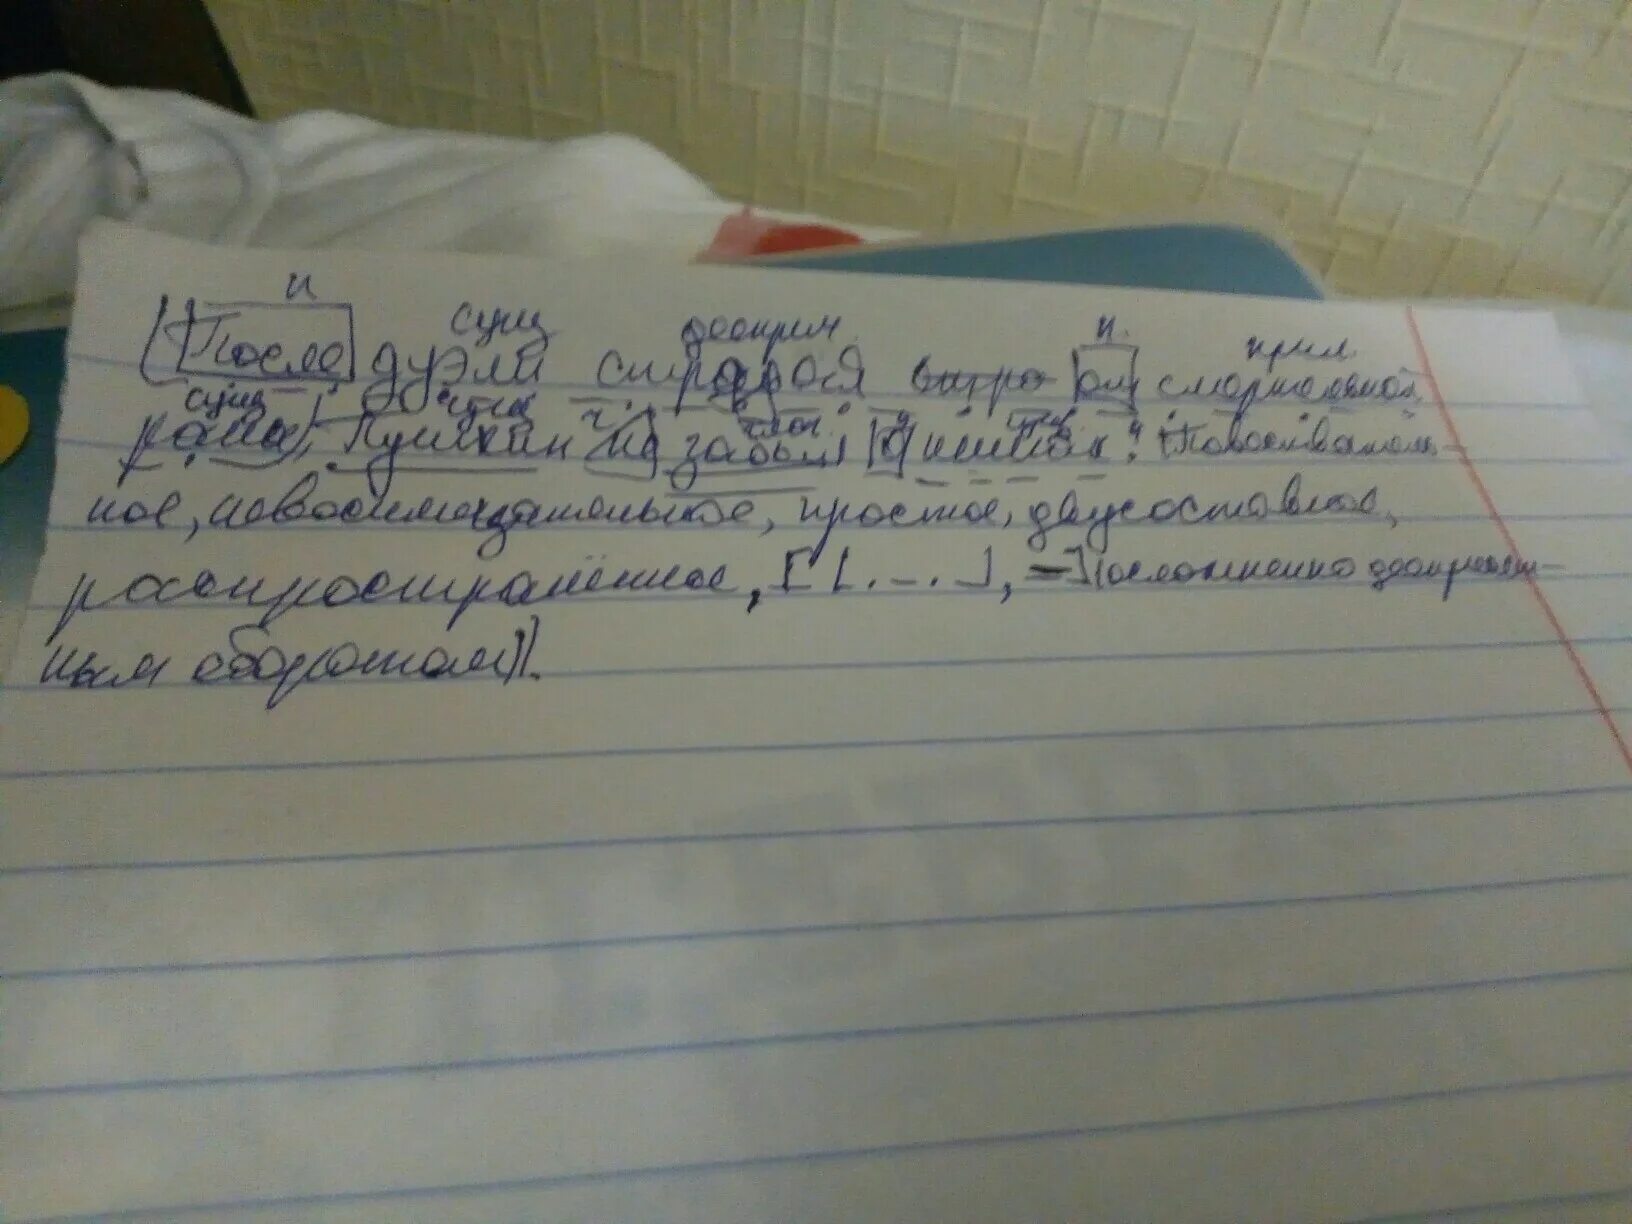 п
сущ дееприч. п. прил.
[После] дуэли страдая от смертельной
сущ сущ ч глаг. п сущ
раны, Пушкин не забыл о книгах. (Повествователь-
ное, невосклицательное, простое, двусоставное,
распространённое, [ [. - . ], - ] (осложнено дееприческ-
ным оборотом)).